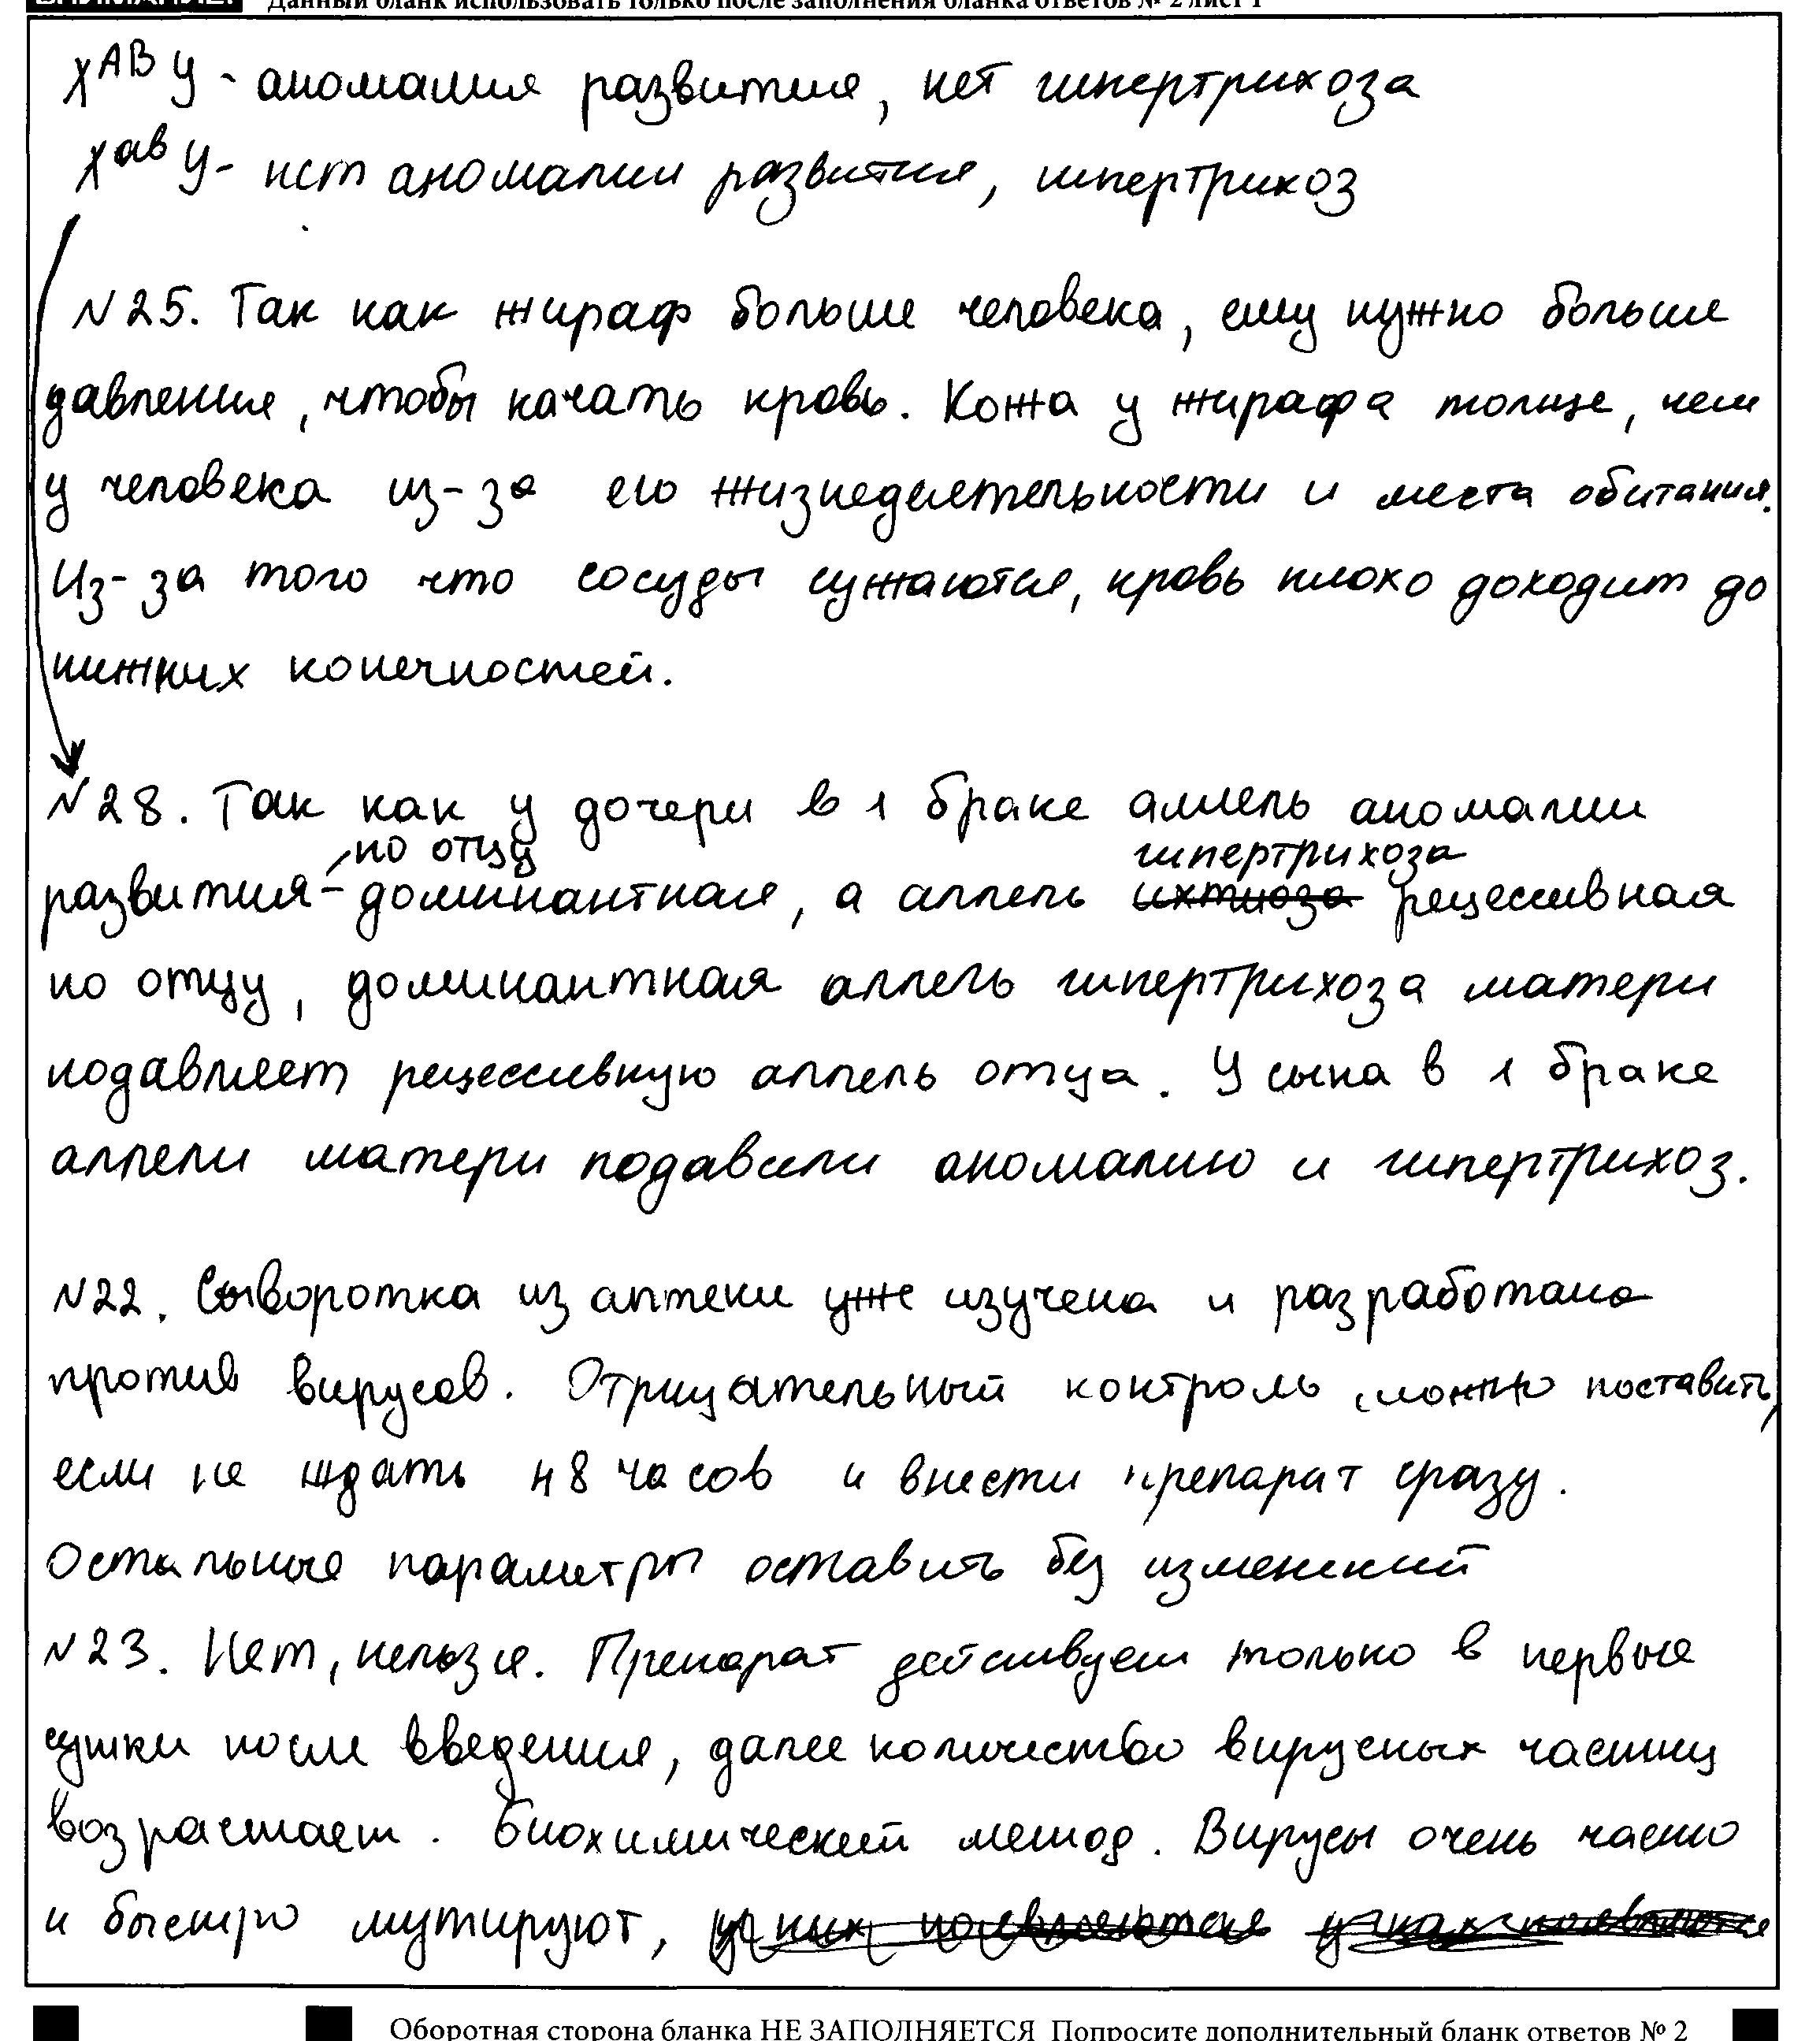 Данный бланк использовать только после заполнения бланка ответов № 2 лист 1
X^AB У - аномалия развития, нет гипертрихоза
X^ab У - нет аномалии развития, гипертрихоз
N25. Так как жираф больше человека, ему нужно больше
давления, чтобы качать кровь. Кожа у жирафа толще, чем
у человека из-за его жизнедеятельности и места обитания.
Из-за того что сосуды сужаются, кровь плохо доходит до
нижних конечностей.
N28. Так как у дочери в 1 браке аллель аномалии
по отцу гипертрихоза
развития - доминантная, а аллель ихтиоза рецессивная
по отцу, доминантная аллель гипертрихоза матери
подавляет рецессивную аллель отца. У сына в 1 браке
аллели матери подавили аномалию и гипертрихоз.
N22. Сыворотка из аптеки уже изучена и разработана
против вирусов. Отрицательный контроль можно поставить,
если не ждать 48 часов и внести препарат сразу.
Остальные параметры оставить без изменений
N23. Нет, нельзя. Препарат действует только в первые
сутки после введения, далее количество вирусных частиц
возрастает. Биохимический метод. Вирусы очень часто
и быстро мутируют, у них появляются
Оборотная сторона бланка НЕ ЗАПОЛНЯЕТСЯ Попросите дополнительный бланк ответов № 2